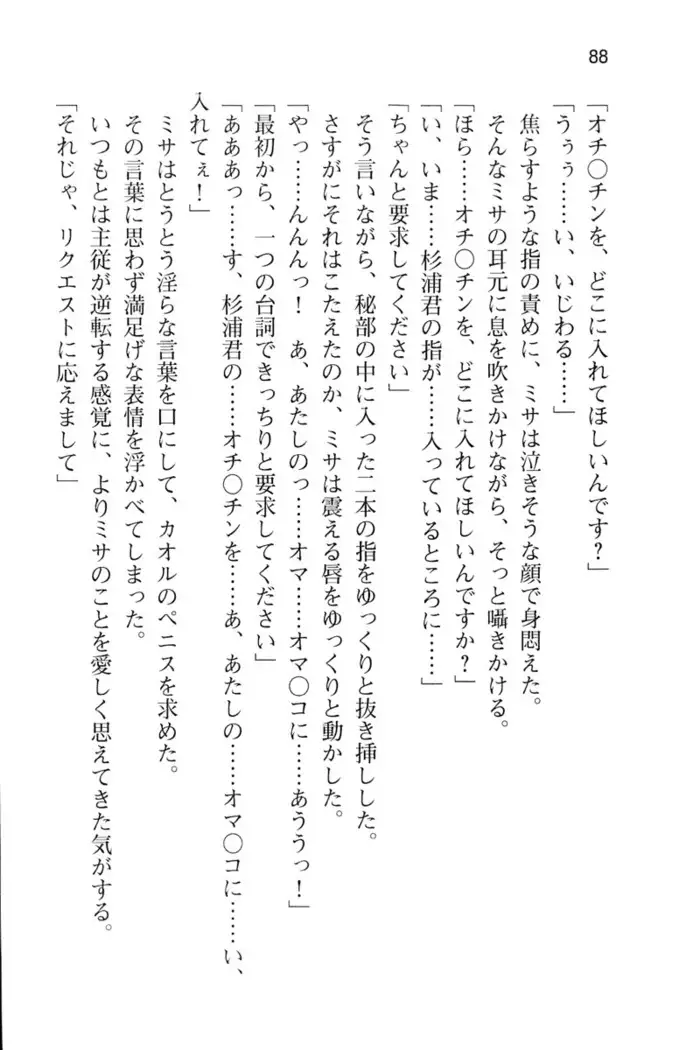 88
「オチ〇チンを、どこに入れてほしいんです？」
「うぅぅ……い、いじわる……」
焦らすような指の責めに、ミサは泣きそうな顔で身悶えた。
そんなミサの耳元に息を吹きかけながら、そっと囁きかける。
「ほら……オチ〇チンを、どこに入れてほしいんですか？」
「い、いま……杉浦君の指が……入っているところに……」
「ちゃんと要求してください」
そう言いながら、秘部の中に入った二本の指をゆっくりと抜き挿しした。
さすがにそれはこたえたのか、ミサは震える唇をゆっくりと動かした。
「やっ……んんんっ！　あ、あたしのっ……オマ……オマ〇コに……あううっ！」
「最初から、一つの台詞できっちりと要求してください」
「あああっ……す、杉浦君の……オチ〇チンを……あ、あたしの……オマ〇コに……い、
入れてぇ！」
ミサはとうとう淫らな言葉を口にして、カオルのペニスを求めた。
その言葉に思わず満足げな表情を浮かべてしまった。
いつもとは主従が逆転する感覚に、よりミサのことを愛しく思えてきた気がする。
「それじゃ、リクエストに応えまして」